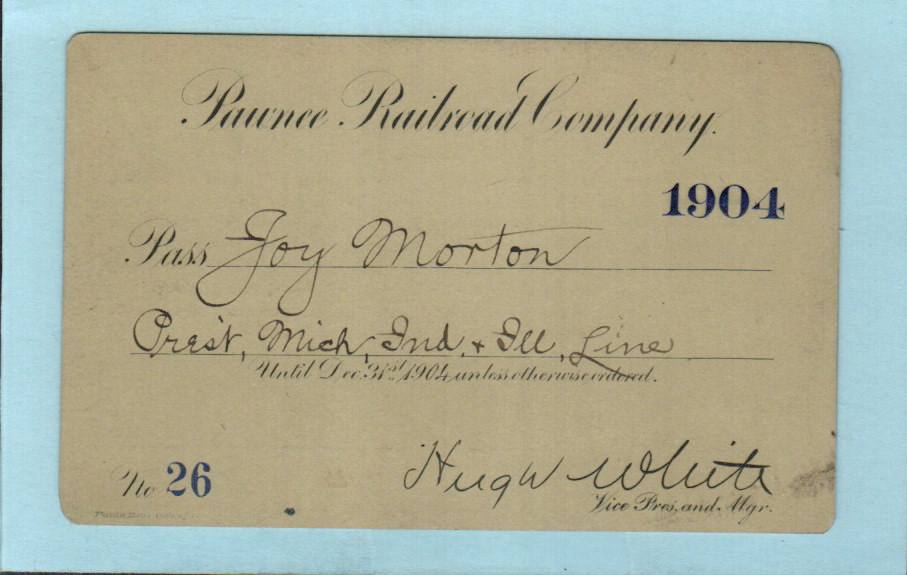 Pawnee Railroad Company.
1904
Pass Joy Morton
Pres't, Mich, Ind. & Ill, Line
Until Dec. 31st 1904 unless otherwise ordered.
No 26
Hugh White
Vice Pres. and Mgr.